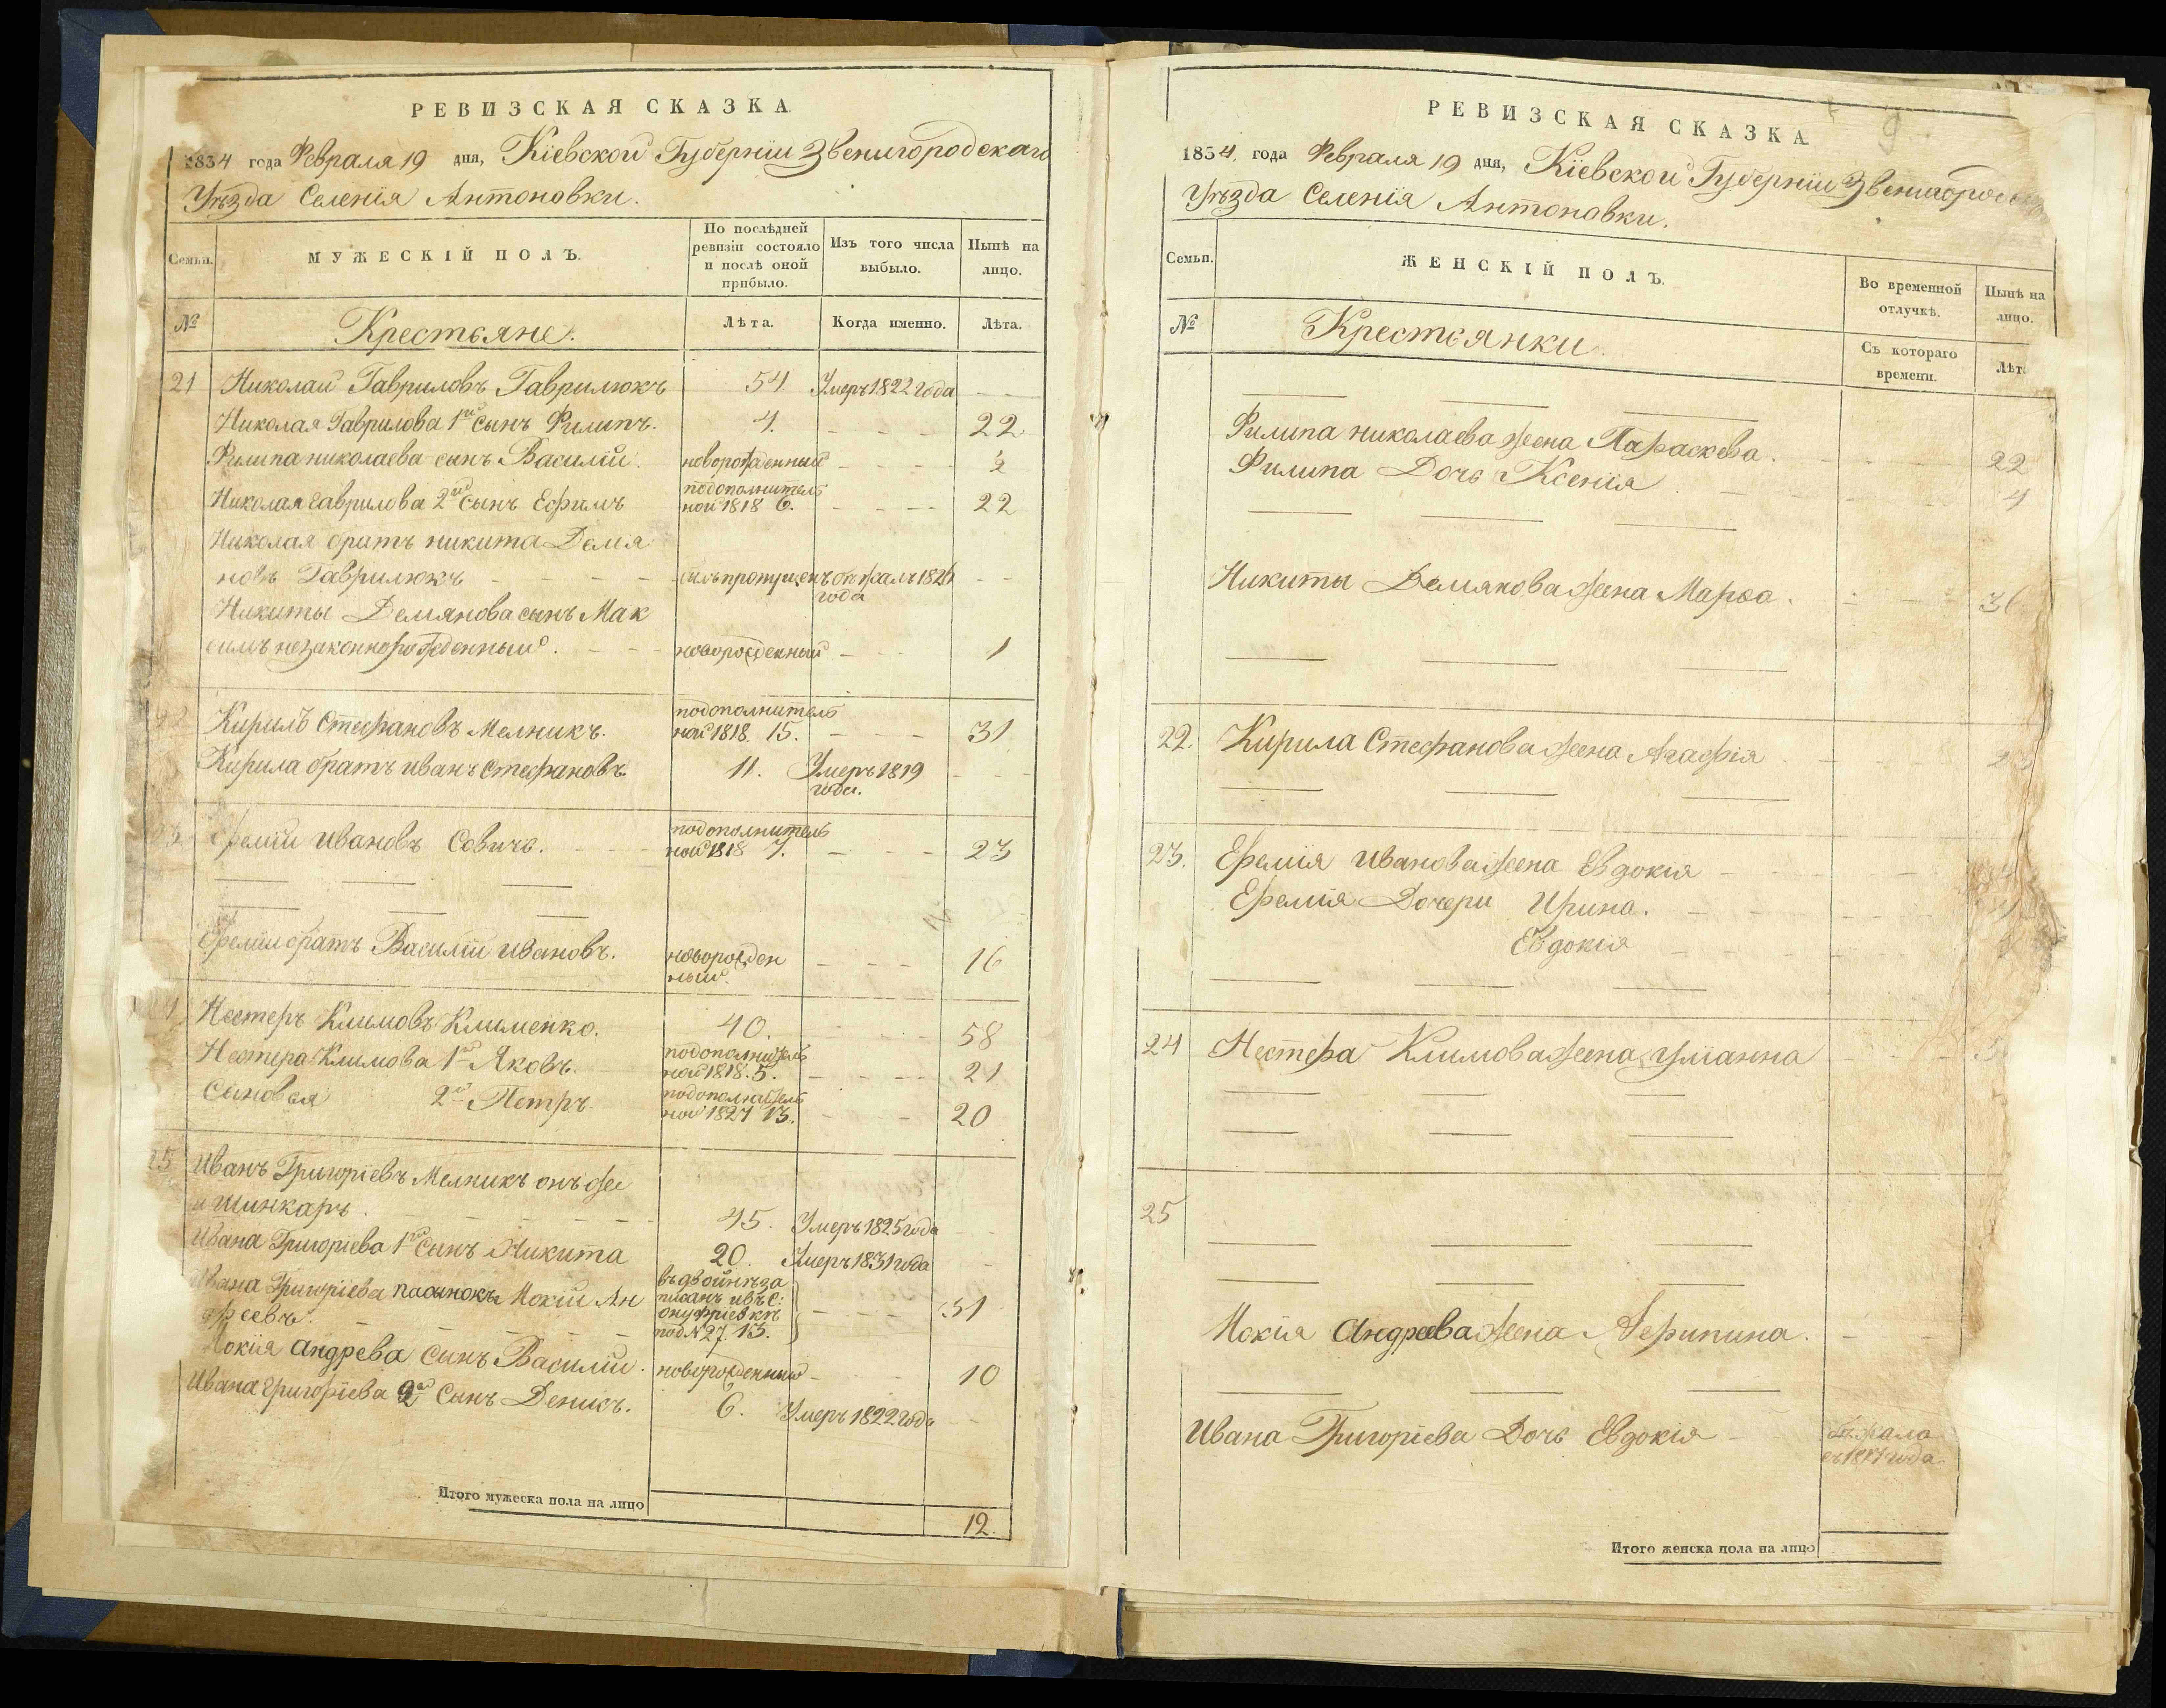 РЕВИЗСКАЯ СКАЗКА
1834 года Февраля 19 дня, Кіевской Губерніи Звенигородскаго
Уѣзда Селенія Антоновки.
Семьи.
МУЖЕСКІЙ ПОЛЪ.
По послѣдней ревизіи состояло и послѣ оной прибыло.
Изъ того числа выбыло.
Нынѣ на лицо.
№
Крестьяне.
Лѣта.
Когда именно.
Лѣта.
21 Николай Гавриловъ Гаврилюкъ 54 Умеръ 1822 года
Николая Гаврилова 1й сынъ Филипъ. 4. 22
Филипа николаева сынъ Василій. новорожденный ½
Николая Гаврилова 2й сынъ Ефимъ подополнительной 1818 6. 22
Николая братъ никита Демя
новъ Гаврилюкъ 1826 года
Никиты Демянова сынъ Мак
симъ незаконнорожденный. новорожденный 1
22 Кирилъ Стефановъ Мелникъ. подополнительной 1818. 15. 31
Кирила братъ иванъ Стефановъ. 11. Умеръ 1819 года.
Еремій Ивановъ Совичъ. подополнительной 1818 7. 23
Еремія братъ Василій Ивановъ. новорожденный. 16
Нестеръ Климовъ Клименко. 40. 58
Нестера Климова 1й Яковъ. подополнительной 1818. 5. 21
Сыновья 2й Петръ подополнительной 1827 13. 20
25 Иванъ Григоріевъ Мелникъ онъ же
и Шинкаръ. 45. Умеръ 1825 года
Ивана Григоріева 1й сынъ Никита 20. Умеръ 1831 года
Ивана Григоріева пасынокъ Мокій Ан
дреевъ. въ двойнѣ за писанъ ивъ с: онуфріевкѣ под N 27. 15. 31
Мокія Андрева сынъ Василій. новорожденный 10
Ивана Григоріева 2й сынъ Денисъ. 6. Умеръ 1822 года
Итого мужеска пола на лицо 12.
РЕВИЗСКАЯ СКАЗКА
1834. года Февраля 19 дня, Кіевской Губерніи
Уѣзда Селенія Антоновки.
Семьи.
ЖЕНСКІЙ ПОЛЪ.
Во временной отлучкѣ.
Нынѣ на лицо.
№
Крестьянки.
Съ котораго времени.
Лѣт.
Филипа николаева жена Параскева. 22
Филипа Дочь Ксенія 4
Никиты Демянова жена Марфа. 36
22. Кирила Стефанова жена Агафія
23. Еремія Иванова жена Евдокія
Еремія Дочери Ирина.
Евдокія
24 Нестера Климова жена Уліанна
25
Мокія Андреева жена Агрипина.
Ивана Григоріева Дочь Евдокія
Итого женска пола на лицо